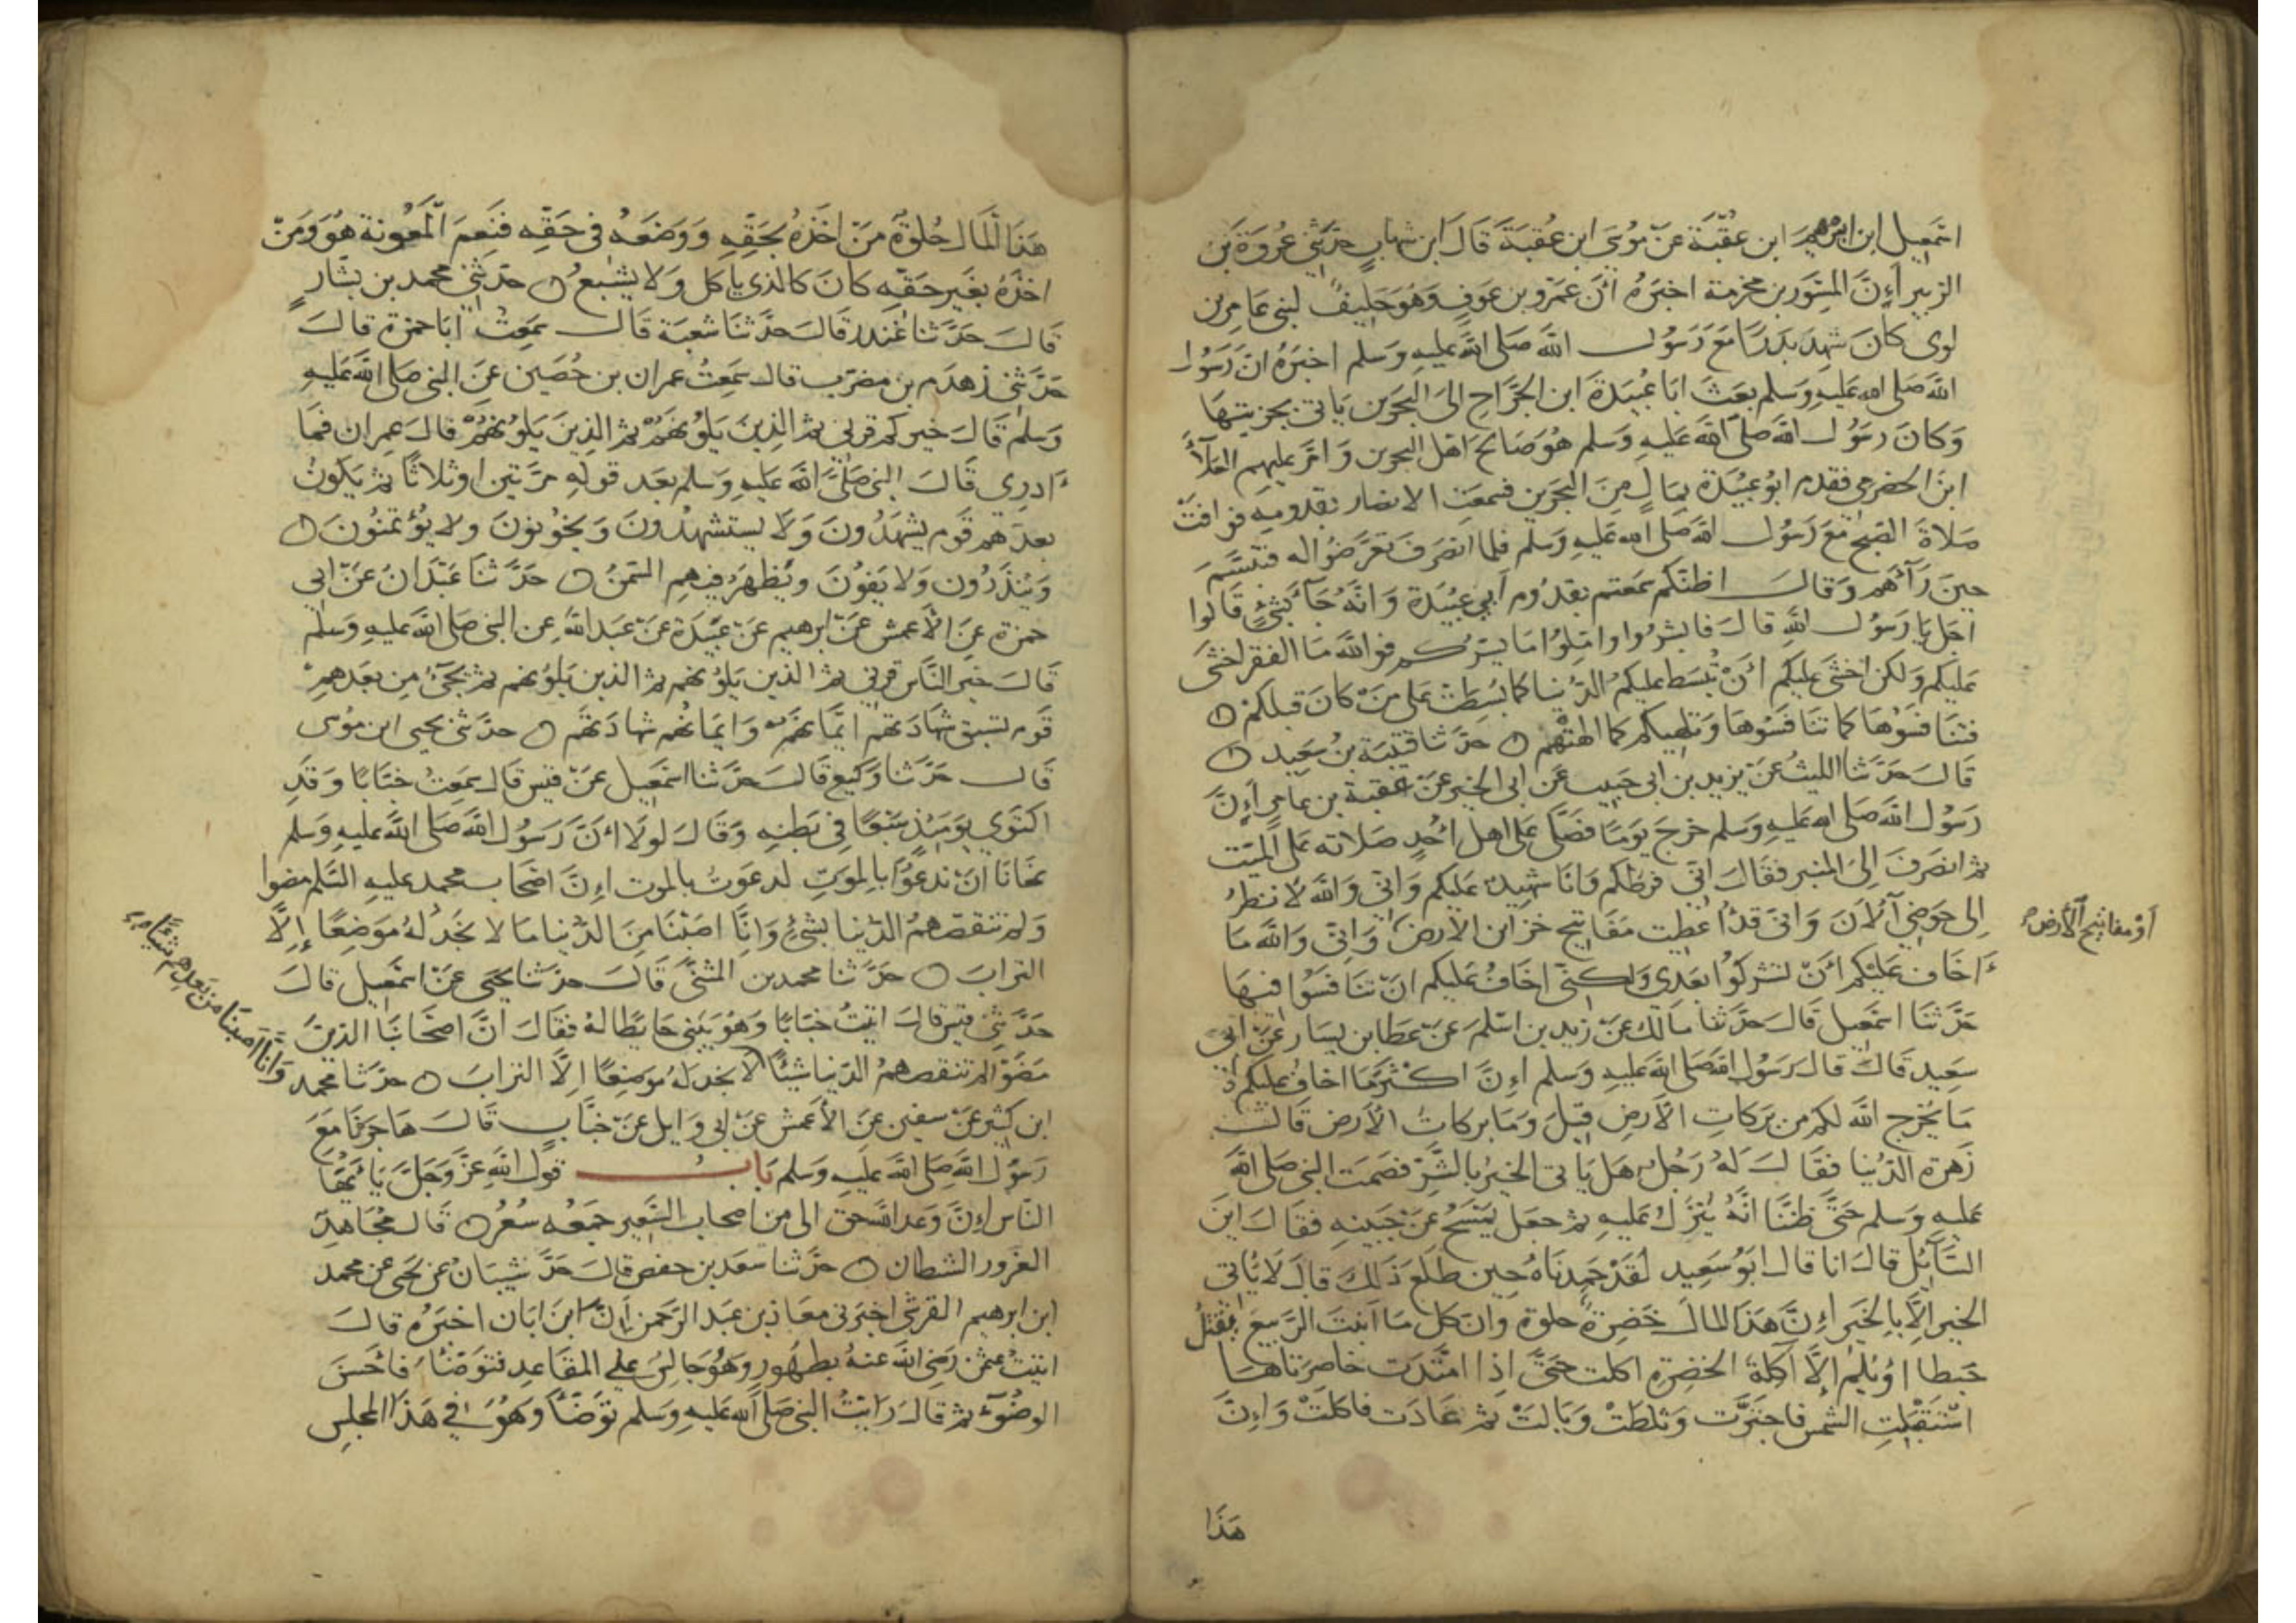 اسمعيل ابن ابرهيم ابن عقبة عن موسى ابن عقبة قال ابن شهاب حدثني عروة بن
الزبير أن المسور بن مخرمة اخبره أن عمرو بن عوف وهو حليف لبني عامر بن
لوى كان شهد بدرا مع رسول الله صلى الله عليه وسلم اخبره ان رسول
الله صلى الله عليه وسلم بعث ابا عبيدة ابن الجراح الى البحرين ياتي بجزيتها
وكان رسول الله صلى الله عليه وسلم هو صالح اهل البحرين وامر عليهم العلآء
ابن الحضرمي فقدم ابو عبيدة بمال من البحرين فسمعت الانصار بقدومه فوافت
صلاة الصبح مع رسول الله صلى الله عليه وسلم فلما انصرف تعرضوا له فتبسم
حين رآهم وقال اظنكم سمعتم بقدوم أبي عبيدة وانه جآء بشئ قالوا
اجل يا رسول الله قال فابشروا واملوا ما يسركم فوالله ما الفقر اخشى
عليكم ولكن اخشى عليكم أن تبسط عليكم الدنيا كما بسطت على من كان قبلكم
فتنافسوها كما تنافسوها وتلهيكم كما الهتهم حدثنا قتيبة بن سعيد
قال حدثنا الليث عن يزيد بن ابي حبيب عن ابي الخير عن عقبة بن عامر أن
رسول الله صلى الله عليه وسلم خرج يوما فصلى على اهل أحد صلاته على الميت
ثم انصرف إلى المنبر فقال اني فرطكم وانا شهيد عليكم واني والله لانظر
الى حوضي الآن واني قد أعطيت مفاتيح خزاين الارض واني والله ما
أو مفاتيح الأرض
أخاف عليكم أن تشركوا بعدي ولكني اخاف عليكم ان تنافسوا فيها
حدثنا اسمعيل قال حدثنا مالك عن زيد بن اسلم عن عطا بن يسار عن ابي
سعيد قال قال رسول الله صلى الله عليه وسلم إن اكثر ما اخاف عليكم
ما يخرج الله لكم من بركات الأرض قيل وما بركات الأرض قال
زهرة الدنيا فقال له رجل هل ياتى الخير بالشر فصمت النبي صلى الله
عليه وسلم حتى ظننا انه ينزل عليه ثم جعل يمسح عن جبينه فقال اين
السآئل قال انا قال ابو سعيد لقد حمدناه حين طلع ذلك قال لا ياتي
الخير إلا بالخير إن هذا المال خضرة حلوة وان كل ما انبت الربيع يقتل
حبطا او يلم إلا آكلة الخضرة اكلت حتى اذا امتدت خاصرتاها
استقبلت الشمس فاجترت وثلطت وبالت ثم عادت فاكلت وإن
هذا
هذا المال حلوة من اخذه بحقه ووضعه في حقه فنعم المعونة هو ومن
اخذه بغير حقه كان كالذي ياكل ولا يشبع حدثني محمد بن بشار
قال حدثنا غندر قال حدثنا شعبة قال سمعت ابا حمزة قال
حدثني زهدم بن مضرب قال سمعت عمران بن حصين عن النبي صلى الله عليه
وسلم قال خيركم قرني ثم الذين يلونهم ثم الذين يلونهم قال عمران فما
أدري قال النبي صلى الله عليه وسلم بعد قوله مرتين او ثلاثا ثم يكون
بعدهم قوم يشهدون ولا يستشهدون ويخونون ولا يؤتمنون
وينذرون ولا يفون ويظهر فيهم السمن حدثنا عبدان عن ابي
حمزة عن الأعمش عن ابرهيم عن عبيدة عن عبد الله عن النبي صلى الله عليه وسلم
قال خير الناس قرني ثم الذين يلونهم ثم الذين يلونهم ثم يجيء من بعدهم
قوم تسبق شهادتهم ايمانهم وايمانهم شهادتهم حدثني يحيى ابن موسى
قال حدثنا وكيع قال حدثنا اسمعيل عن قيس قال سمعت خبابا وقد
اكتوي يومئذ سبعا في بطنه وقال لولا أن رسول الله صلى الله عليه وسلم
نهانا أن ندعوا بالموت لدعوت بالموت إن اصحاب محمد عليه السلم مضوا
ولم تنقصهم الدنيا بشئ وانا اصبنا من الدنيا ما لا نجد له موضعا إلا
التراب حدثنا محمد بن المثنى قال حدثنا يحيى عن اسمعيل قال
حدثني قيس قال اتيت خبابا وهو يبني حايطا له فقال ان اصحابنا الذين
مضوا لم تنقصهم الدنيا شيئا لا نجد له موضعا إلا التراب حدثنا محمد
وإنا أصبنا من بعدهم شيئا
ابن كثير عن سفين عن الأعمش عن ابي وايل عن خباب قال هاجرنا مع
رسول الله صلى الله عليه وسلم باب قول الله عز وجل يا ايها
الناس إن وعد الله حق الى من اصحاب السعير جمعه سعر قال مجاهد
الغرور الشطان حدثنا سعد بن حفص قال حد شيبان عن يحيى عن محمد
ابن ابرهيم القرشي اخبرني معاذ بن عبد الرحمن أن ابن ابان اخبره قال
اتيت عثمن رضي الله عنه بطهور وهو جالس على المقاعد فتوضأ فأحسن
الوضوء ثم قال رايت النبي صلى الله عليه وسلم توضأ وهو في هذا المجلس